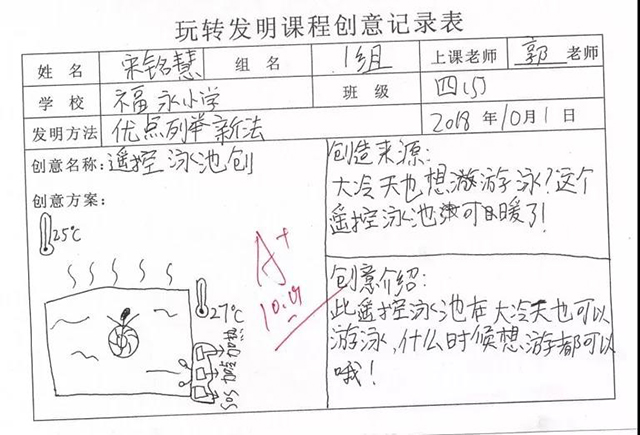 玩转发明课程创意记录表
姓 名 宋铭慧 组 名 1组 上课老师 郭 老师
学 校 福永小学 班 级 四(5)
发明方法 优点列举新法 2018 年 10 月 1 日
创意名称: 遥控泳池创
创意方案:
25℃
27℃
SOS
加热
A+
创造来源:
大冷天也想游泳?这个
遥控泳池可日暖了!
创意介绍:
此遥控泳池在大冷天也可以
游泳,什么时候想游都可以
哦!